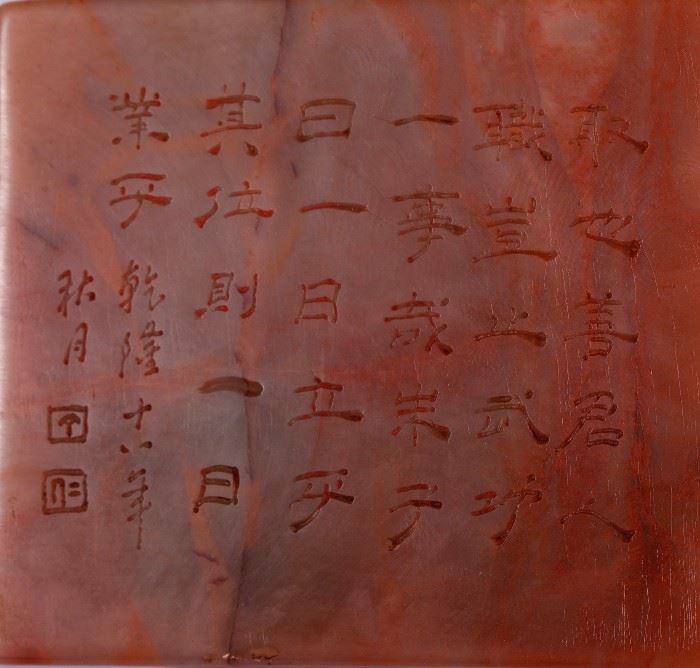 取也善君人
職豈止武功
一事哉朱子
曰一日立乎
其位則一日
業乎
乾隆十八年
秋月